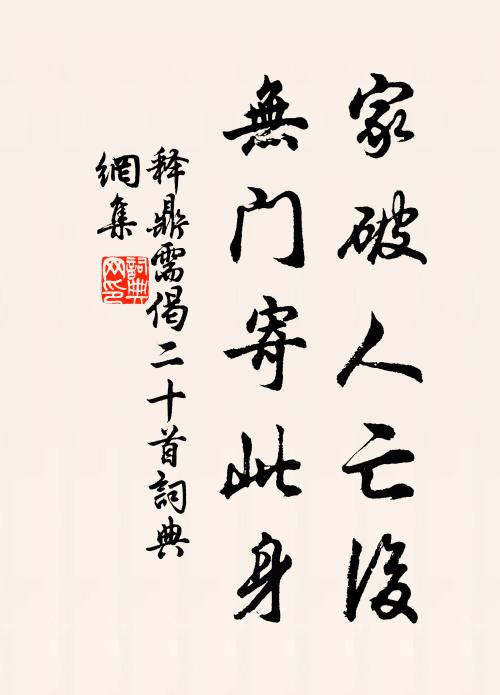 家破人亡後
無門寄此身
释鼎需偈二十首詞典
網集
詞典
网印